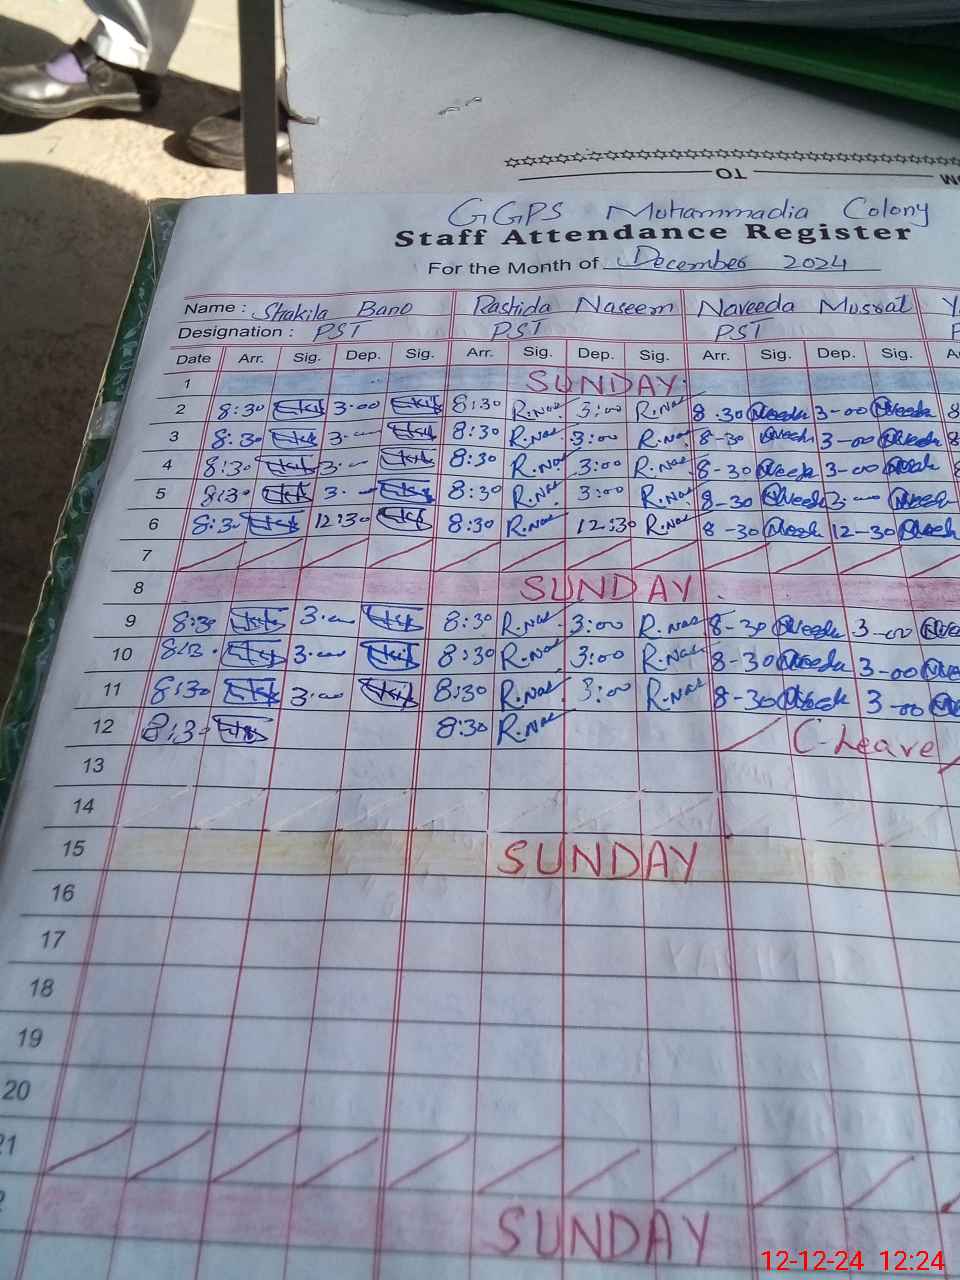 TO
GGPS Mohammadia Colony
Staff Attendance Register
For the Month of December 2024
Name : Shakila Bano Rashida Naseem Naveeda Musrat
Designation : PST PST PST
Date Arr. Sig. Dep. Sig. Arr. Sig. Dep. Sig. Arr. Sig. Dep. Sig.
1 SUNDAY
2 8:30 3-00 8:30 R.Nas 3:00 R.Nas 8-30 3-00
3 8:30 3-00 8:30 R.Nas 3:00 R.Nas 8-30 3-00
4 8:30 3-00 8:30 R.Nas 3:00 R.Nas 8-30 3-00
5 8:30 3-00 8:30 R.Nas 3:00 R.Nas 8-30 3-00
6 8:30 12:30 8:30 R.Nas 12:30 R.Nas 8-30 12-30
7
8 SUNDAY
9 8:30 3-00 8:30 R.Nas 3:00 R.Nas 8-30 3-00
10 8:30 3-00 8:30 R.Nas 3:00 R.Nas 8-30 3-00
11 8:30 3-00 8:30 R.Nas 3:00 R.Nas 8-30 3-00
12 8:30 8:30 R.Nas C-Leave
13
14
15 SUNDAY
16
17
18
19
20
21
SUNDAY
12-12-24 12:24